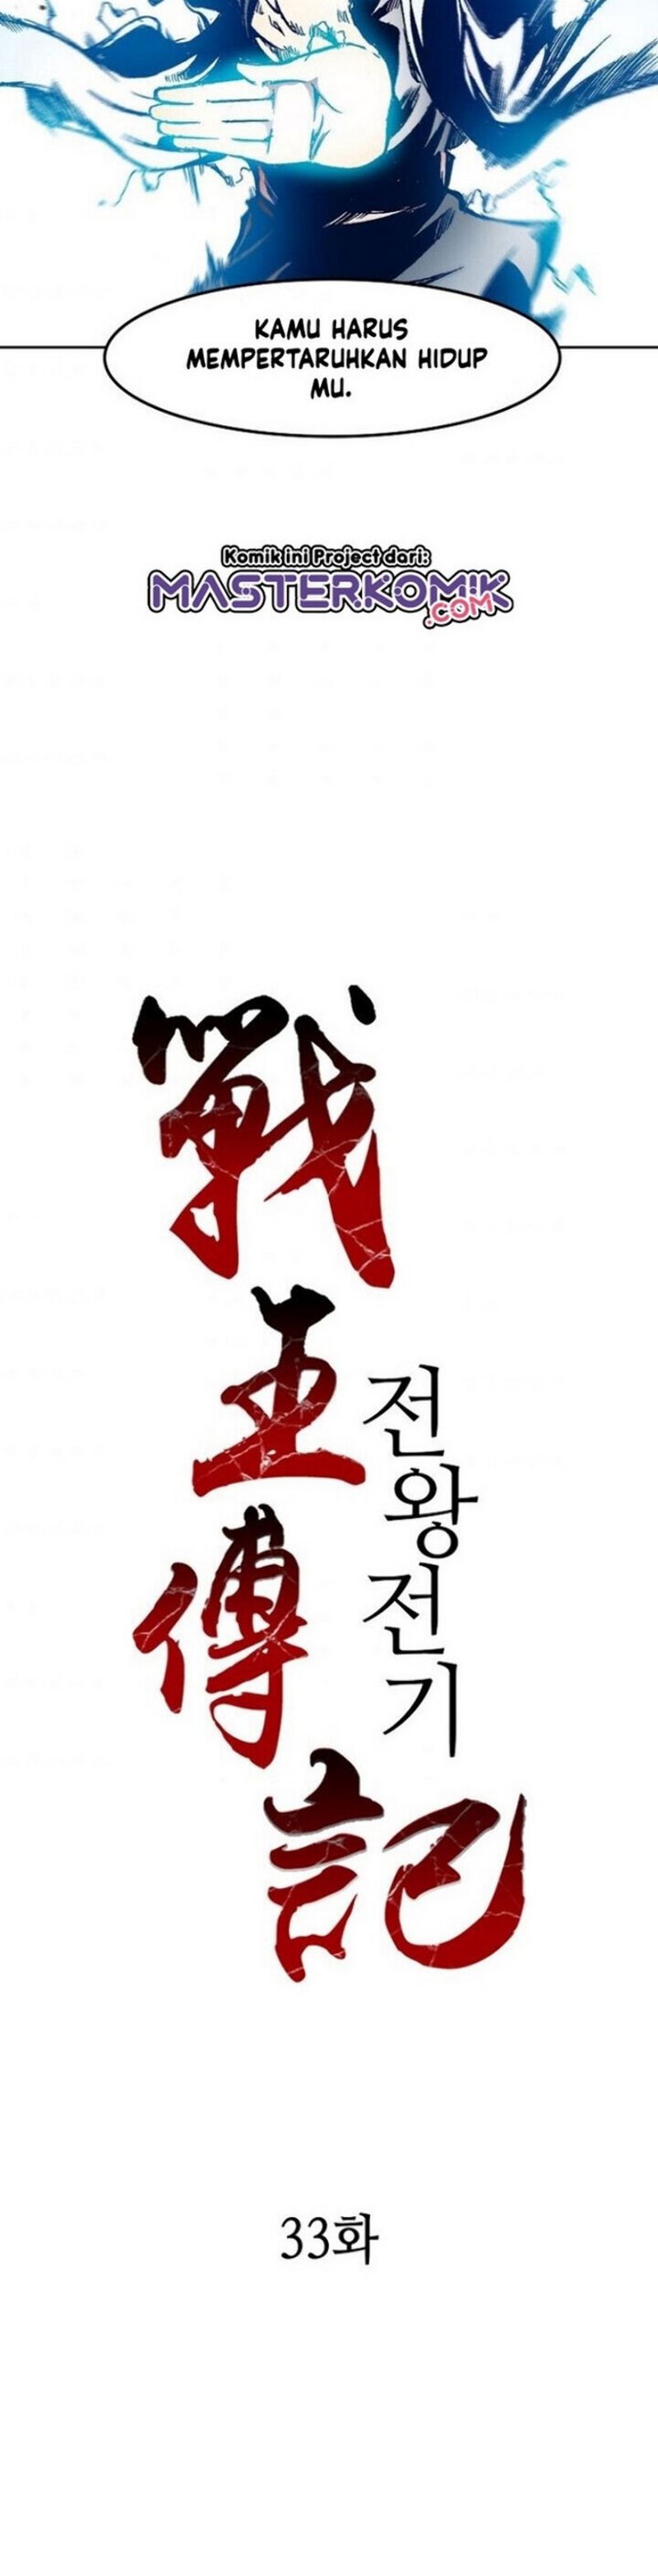 KAMU HARUS
MEMPERTARUHKAN HIDUP
MU.
Komik ini Project dari:
MASTERKOMIK
.COM
戰王傳記
전왕전기
33화